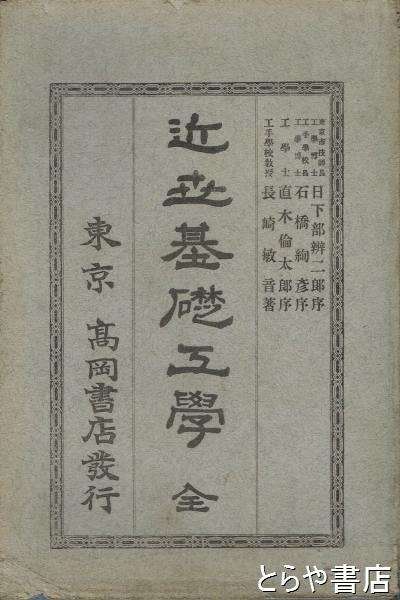 東京市技師長
工學博士 日下部辨二郎序
工手學校長
工學博士 石橋絢彦序
工學士 直木倫太郎序
工手學校教授 長崎敏音著
近世基礎工學 全
東京 髙岡書店發行
とらや書店